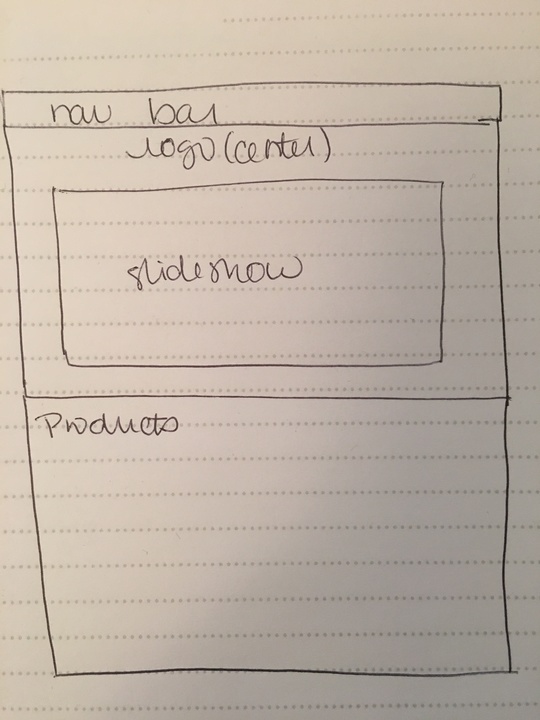 nav bar
logo (center)
slideshow
Products